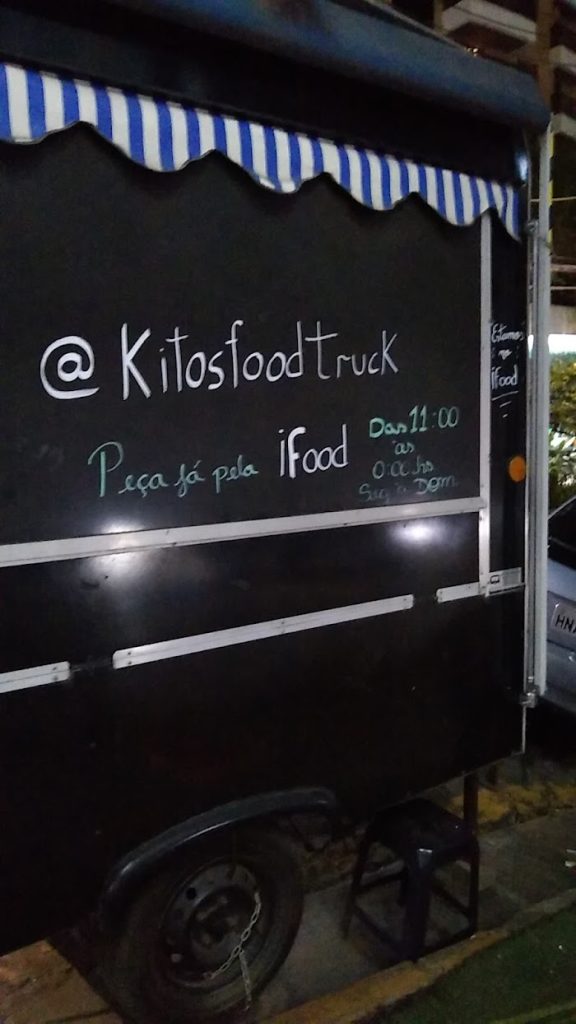 @Kitosfoodtruck
Peça já pela iFood
Das 11:00
as
0:00 hs
Seg a Dom
Estamos
no
ifood
HN